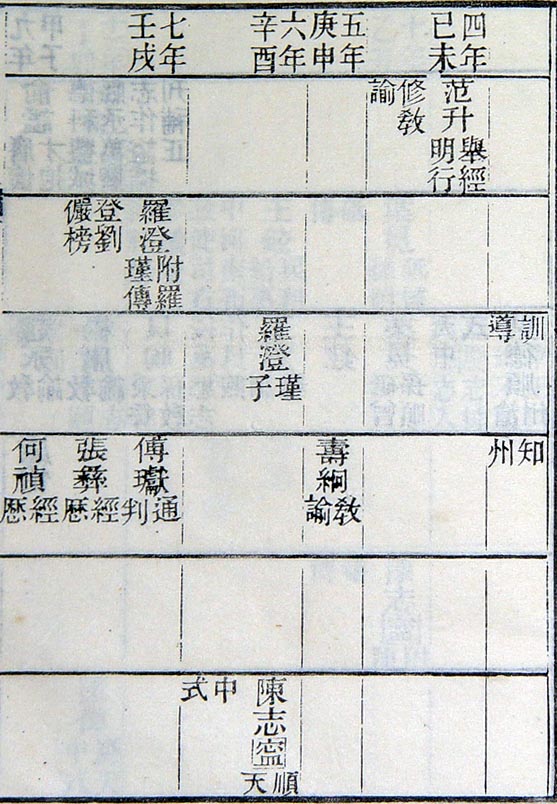 四年
己未
五年
庚申
六年
辛酉
七年
壬戌
范升
舉經
明行
修教
諭
羅澄
附羅
瑾傳
登劉
儼榜
訓導
羅澄
瑾子
知州
壽絅
教諭
傅瓛
通判
張彝
經厯
何禎
經厯
陳志寍
順天
中式